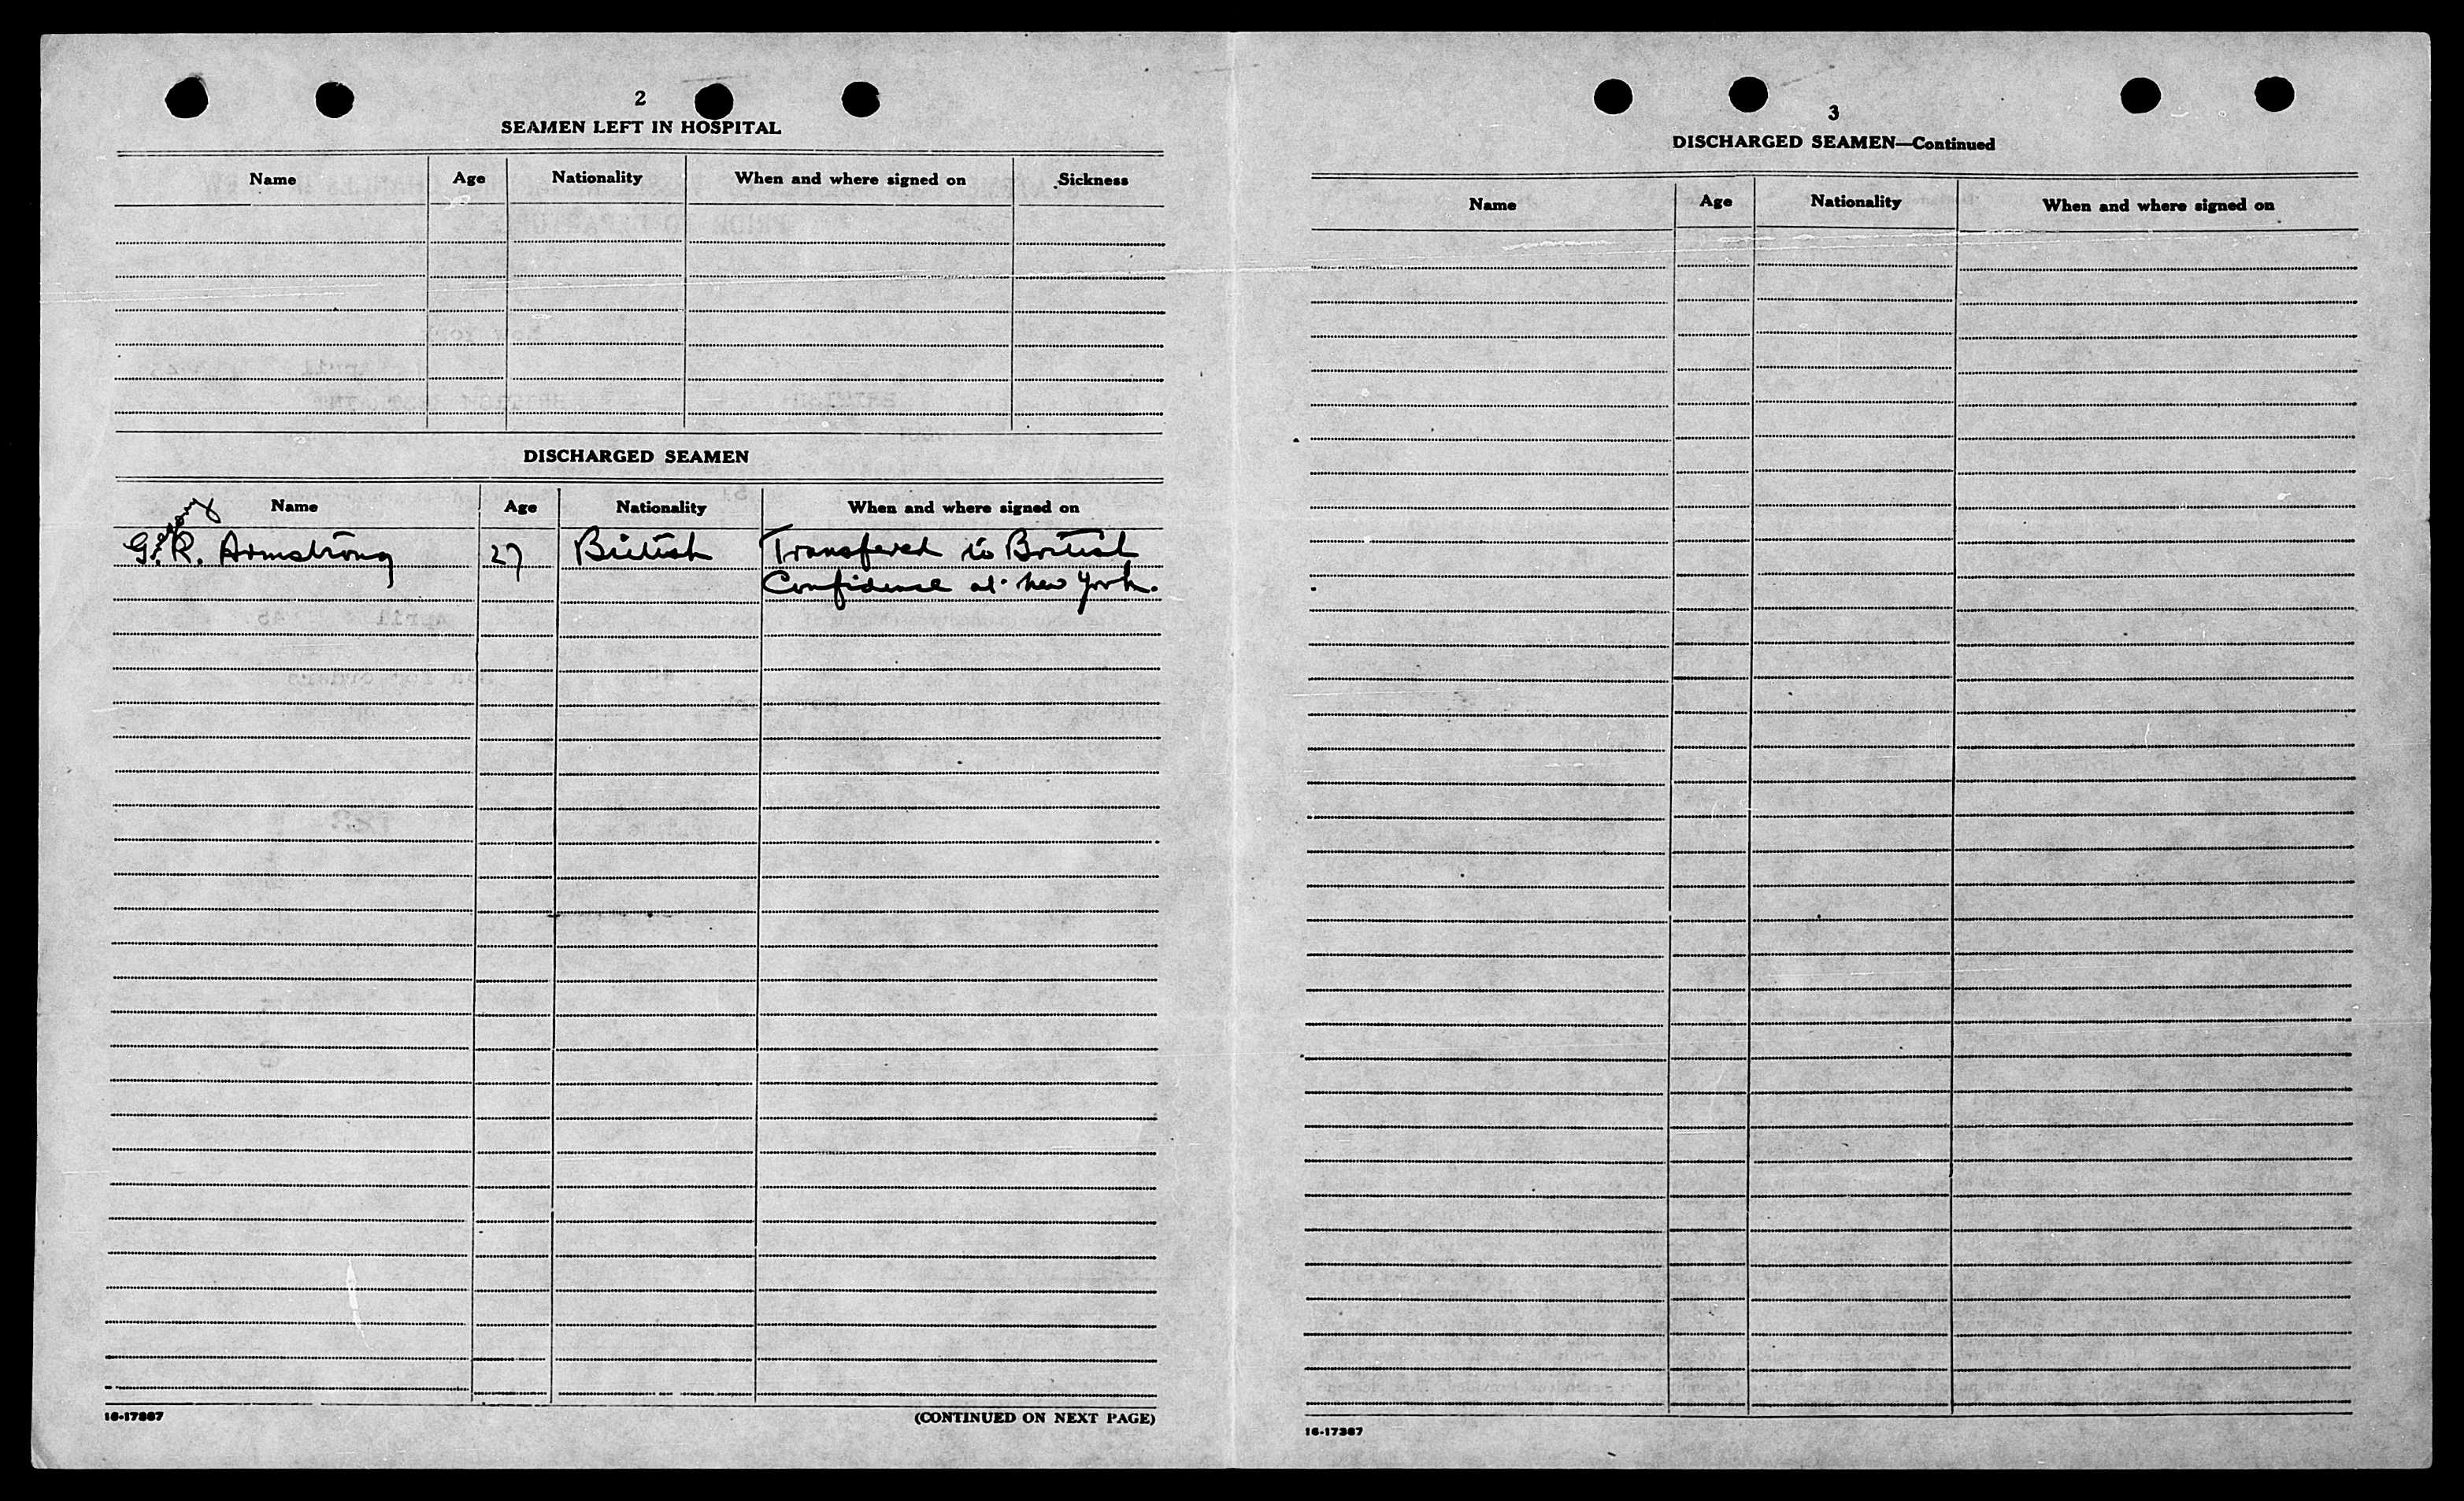 2
SEAMEN LEFT IN HOSPITAL
Name Age Nationality When and where signed on Sickness
DISCHARGED SEAMEN
Name Age Nationality When and where signed on
G. R. Armstrong 27 British Transfered to British
Confidence at New York.
16-17367
(CONTINUED ON NEXT PAGE)
3
DISCHARGED SEAMEN—Continued
Name Age Nationality When and where signed on
16-17367